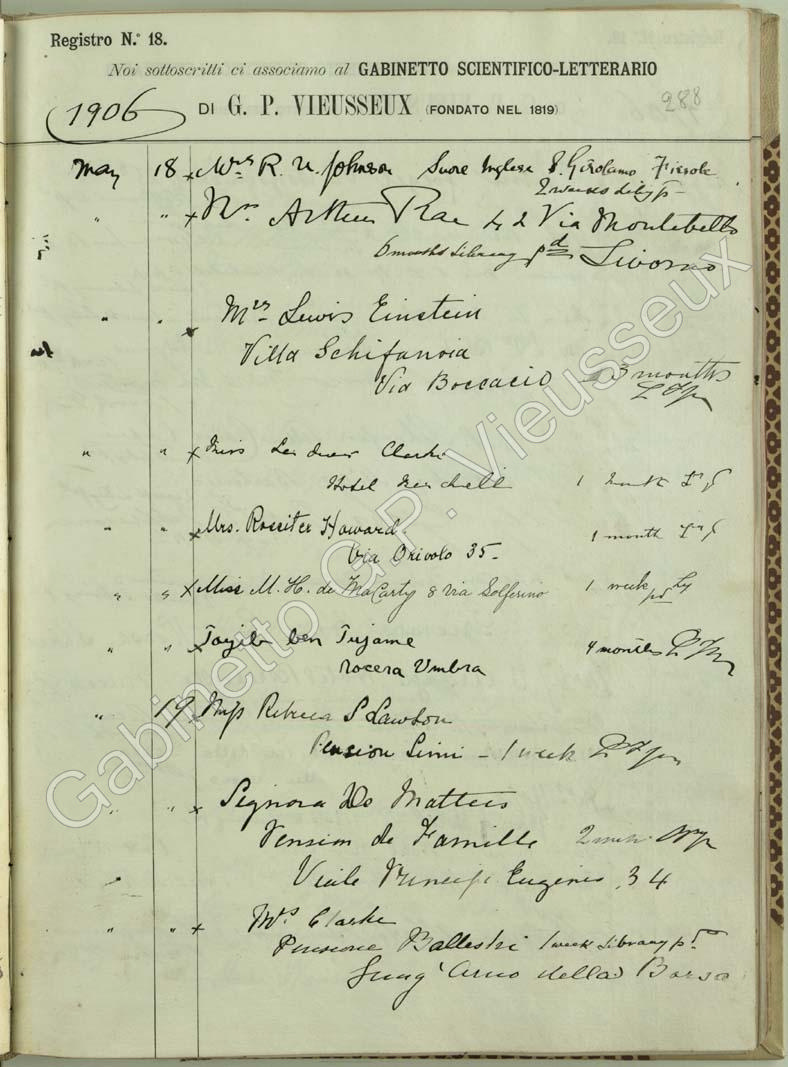 Registro N.° 18.
Noi sottoscritti ci associamo al GABINETTO SCIENTIFICO-LETTERARIO
1906 DI G. P. VIEUSSEUX (FONDATO NEL 1819) 288
May 18 x Mrs R. U. Johnson Suore Inglese S. Girolamo Fiesole
2 weeks
" " x Mr. Arthur Rae 42 Via Montebello
6 months Library pd Livorno
" " x Mrs Lewis Einstein
Villa Schifanoia
Via Boccacio 3 months
" " x Miss Clarke
Hotel 1 month
" " x Mrs. Rossiter Howard
Via Orivolo 35- 1 month
" " x Miss M. H. de MaCarty 8 via Solferino 1 week pd Ly
" " x Tayib ben Tujame
Nocera Umbra 4 months
" 19 x Miss Rebecca S Lawton
Pension Simi - 1 week
" " x Signora De Matteis
Pension de Famille
Viale Principe Eugenio, 34
" " x Mrs Clarke
Pensione Ballestri 1 week Library pd
Lung' Arno della Borsa
Gabinetto G.P. Vieusseux